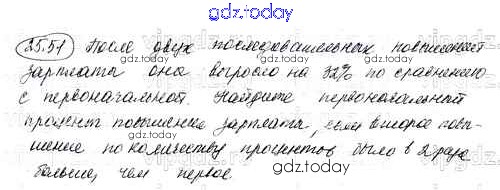 gdz.today
25.51 После двух последовательных повышений
зарплаты она выросло на 32% по сравнению
с первоначальной. Найдите первоначальный
процент повышения зарплаты, если второе повы-
шение по количеству процентов было в 2 раза
больше, чем первое
gdz.today